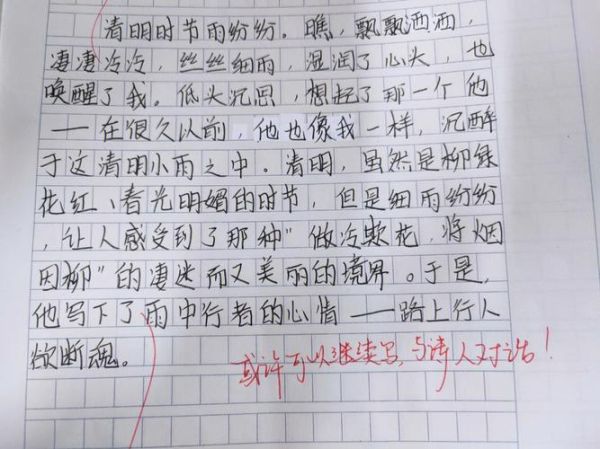 清明时节雨纷纷。瞧，飘飘洒洒，
凄凄冷冷，丝丝细雨，湿润了心头，也
唤醒了我。低头沉思，想起了那一个他
——在很久以前，他也像我一样，沉醉
于这清明小雨之中。清明，虽然是柳绿
花红、春光明媚的时节，但是细雨纷纷
，让人感受到了那种"做冷欺花，将烟
困柳"的凄迷而又美丽的境界。于是，
他写下了雨中行者的心情——路上行人
欲断魂。
或许可以继续写，与诗人对话！